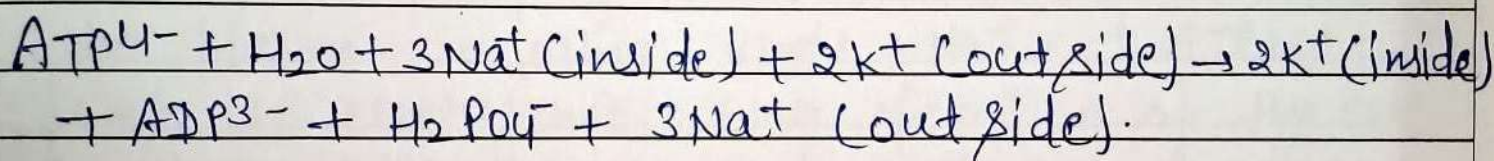 ATP4- + H2O + 3Na+ (inside) + 2K+ (outside) → 2K+ (inside)
+ ADP3- + H2PO4- + 3Na+ (outside).